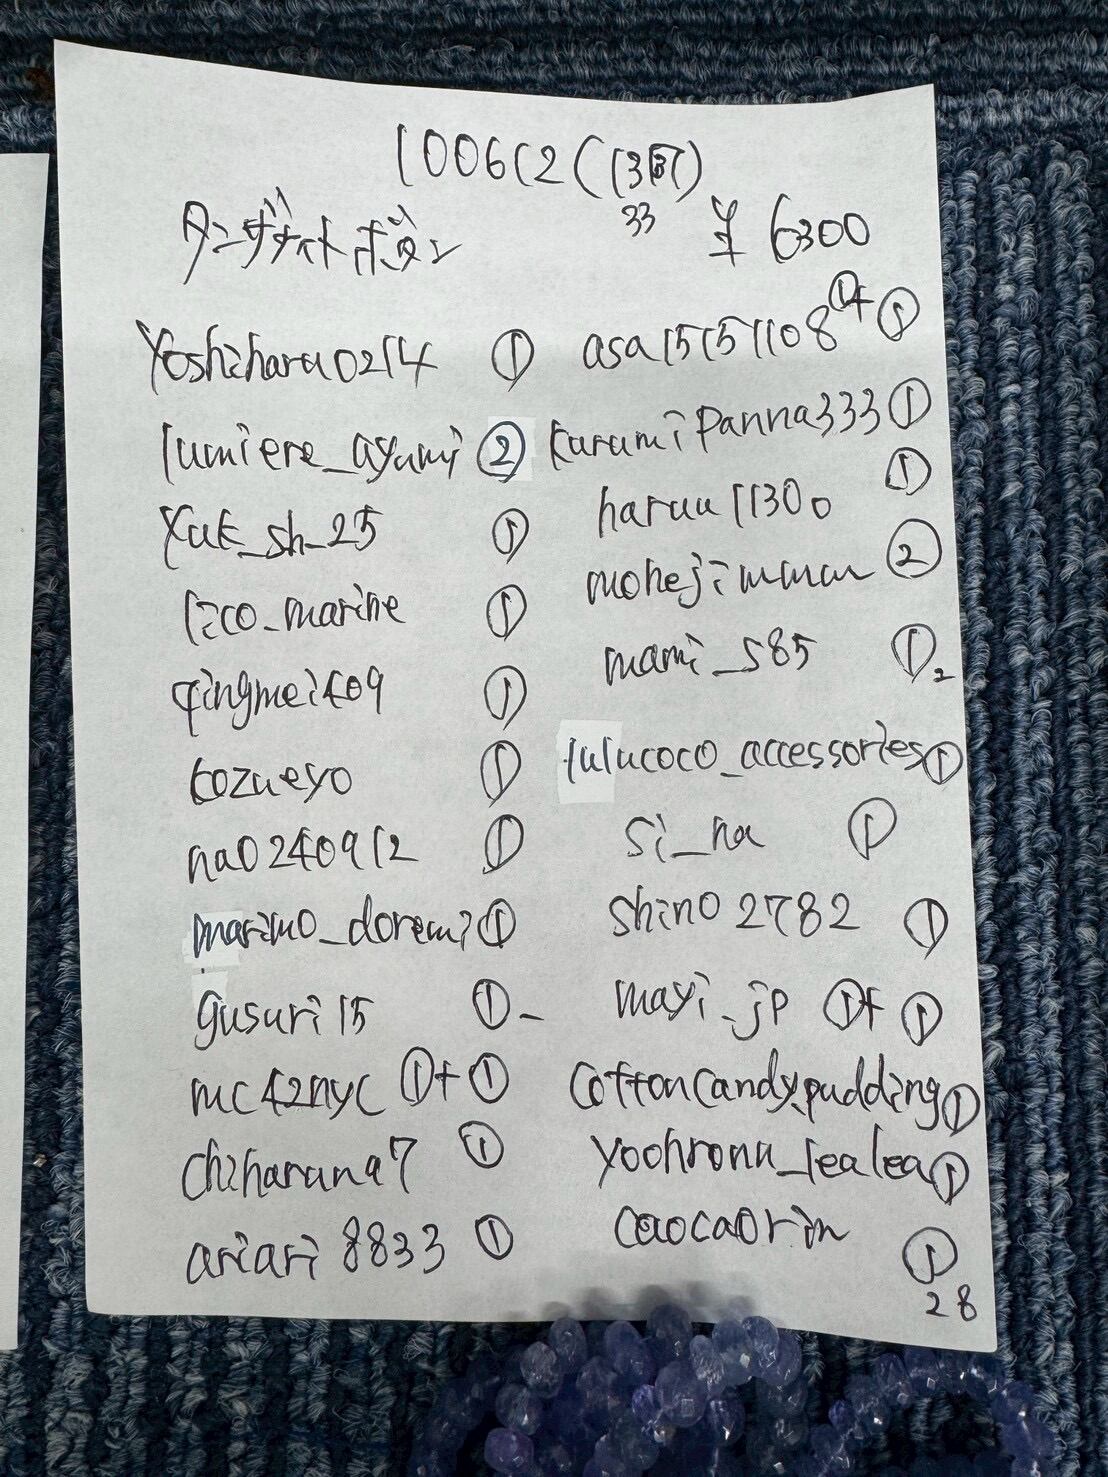 100612 (
33
タンザナイト ボタン ¥6300
Yoshiharu0214 ①
lumiere_ayumi ②
Yuk_sh_25 ①
lico_marine ①
qingmei409 ①
kozueyo ①
na0240912 ①
marimo_doremi ①
gusuri15 ①-
mc42nyc ①+①
chiharuna7 ①
ariari8833 ①
asa15151108 ①+①
kurumipanna333 ①
haruu1130 ①
mohejimmm ②
mami_585 ① 2
lulucoco_accessories ①
si_na ①
shino2782 ①
mayi_jp ①+①
cottoncandypudding ①
yoohronu_lealea ①
caocaorin ①
28